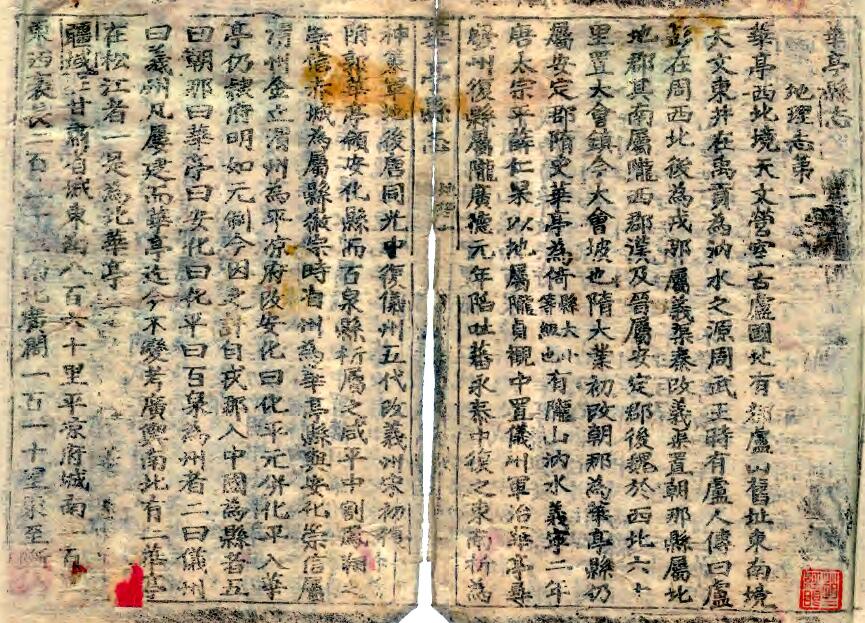 華亭縣志
地理志第一
華亭西北境天文營室古盧國址有郡盧山舊址東南境
天文東井在禹貢為汭水之源周武王時有盧人傳曰盧
彭在周西北後為戎那屬義渠秦改義渠置朝那縣屬北
地郡其南屬隴西郡漢及晉屬安定郡後魏於西北六十
里置大會鎮今大會坡也隋大業初改朝那為華亭縣仍
屬安定郡隋史華亭為倚縣大小等級也有隴山汭水義寧二年
唐太宗平薛仁杲以地屬隴貞觀中置儀州軍治華亭尋
州復縣屬隴廣德元年陷吐蕃永泰中復之東南析為
神策軍地後唐同光中復儀州五代改義州宋初
附郭華亭領安化縣而百泉縣析屬之咸平中割鳳翔之
崇信赤城為屬縣徽宗時省州為華亭縣與安化崇信屬
渭州金立渭州為平凉府改安化曰化平元併化平入華
亭仍隸府明如元制今因之計自戎那入中國為縣者五
曰朝那曰華亭曰安化曰化平曰百泉為州者二曰儀州
曰義州凡屢建而華亭迄今不變考廣輿南北有二華亭
在松江者一是為北華亭
疆域在甘肅省城東南八百六十里平凉府城南一百
東西袤長二百二十里南北廣闊一百一十里東至
華亭縣志
地理